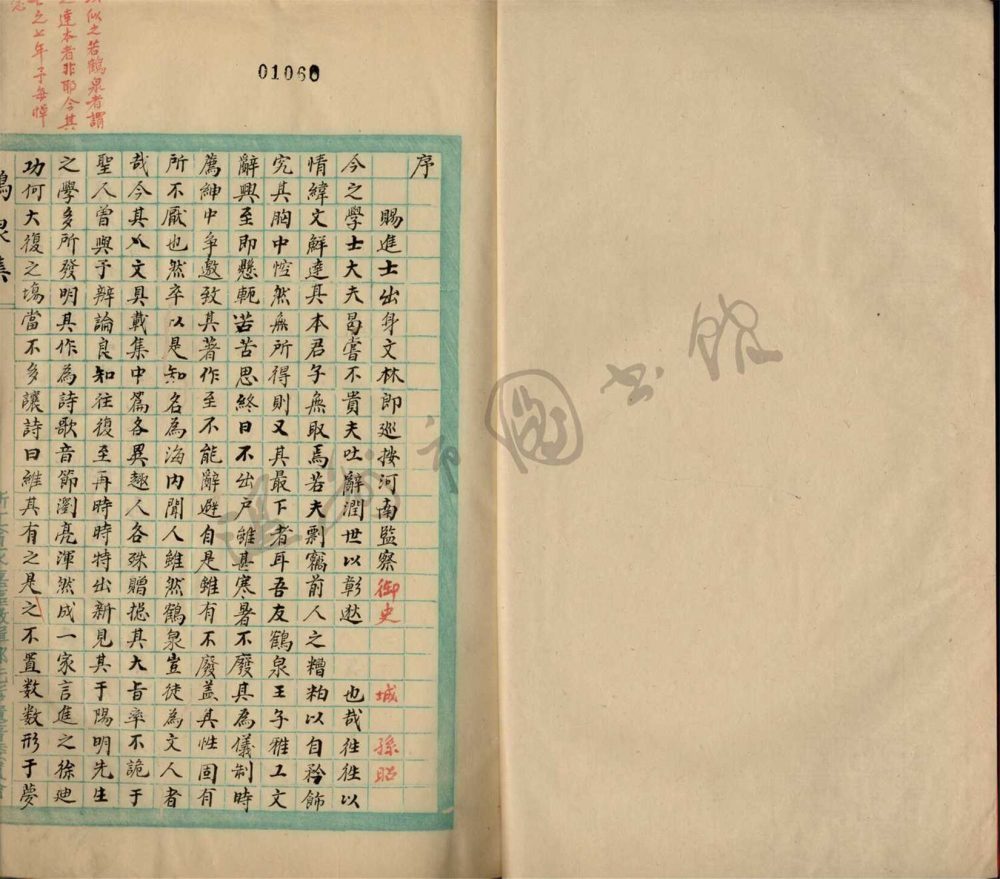 01060
序
賜進士出身文林郎巡按河南監察御史 城 孫昭
今之學士大夫曷嘗不貴夫吐辭潤世以彰 也哉徃徃以
情緯文鮮達其本君子無取焉若夫剽竊前人之糟粕以自矜飾
究其胸中悾然無所得則又其最下者耳吾友鶴泉王子雅工文
辭興至即懸軛苦思終日不出户雖甚寒暑不廢其為儀制時
薦紳中爭邀致其著作至不能辭避自是雖有不廢盖其性固有
所不厭也然卒以是知名為海内聞人雖然鶴泉豈徒為文人者
哉今其 文具載集中篇各異趣人各殊贈揔其大旨率不詭于
聖人曾與予辨論良知往復至再時時特出新見其于陽明先生
之學多所發明其作為詩歌音節瀏亮渾然成一家言進之徐廸
功何大復之塲當不多讓詩曰維其有之是 之不置数数形于夢
鶴泉集
似之若鶴泉者謂
達本者非耶今其
之七年予每悼
圖書館